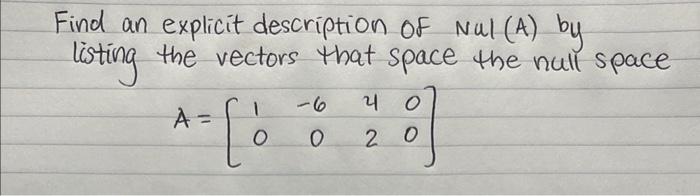 Find an explicit description of Nul (A) by
listing the vectors that space the null space
A = [ 1 -6 4 0
0 0 2 0 ]